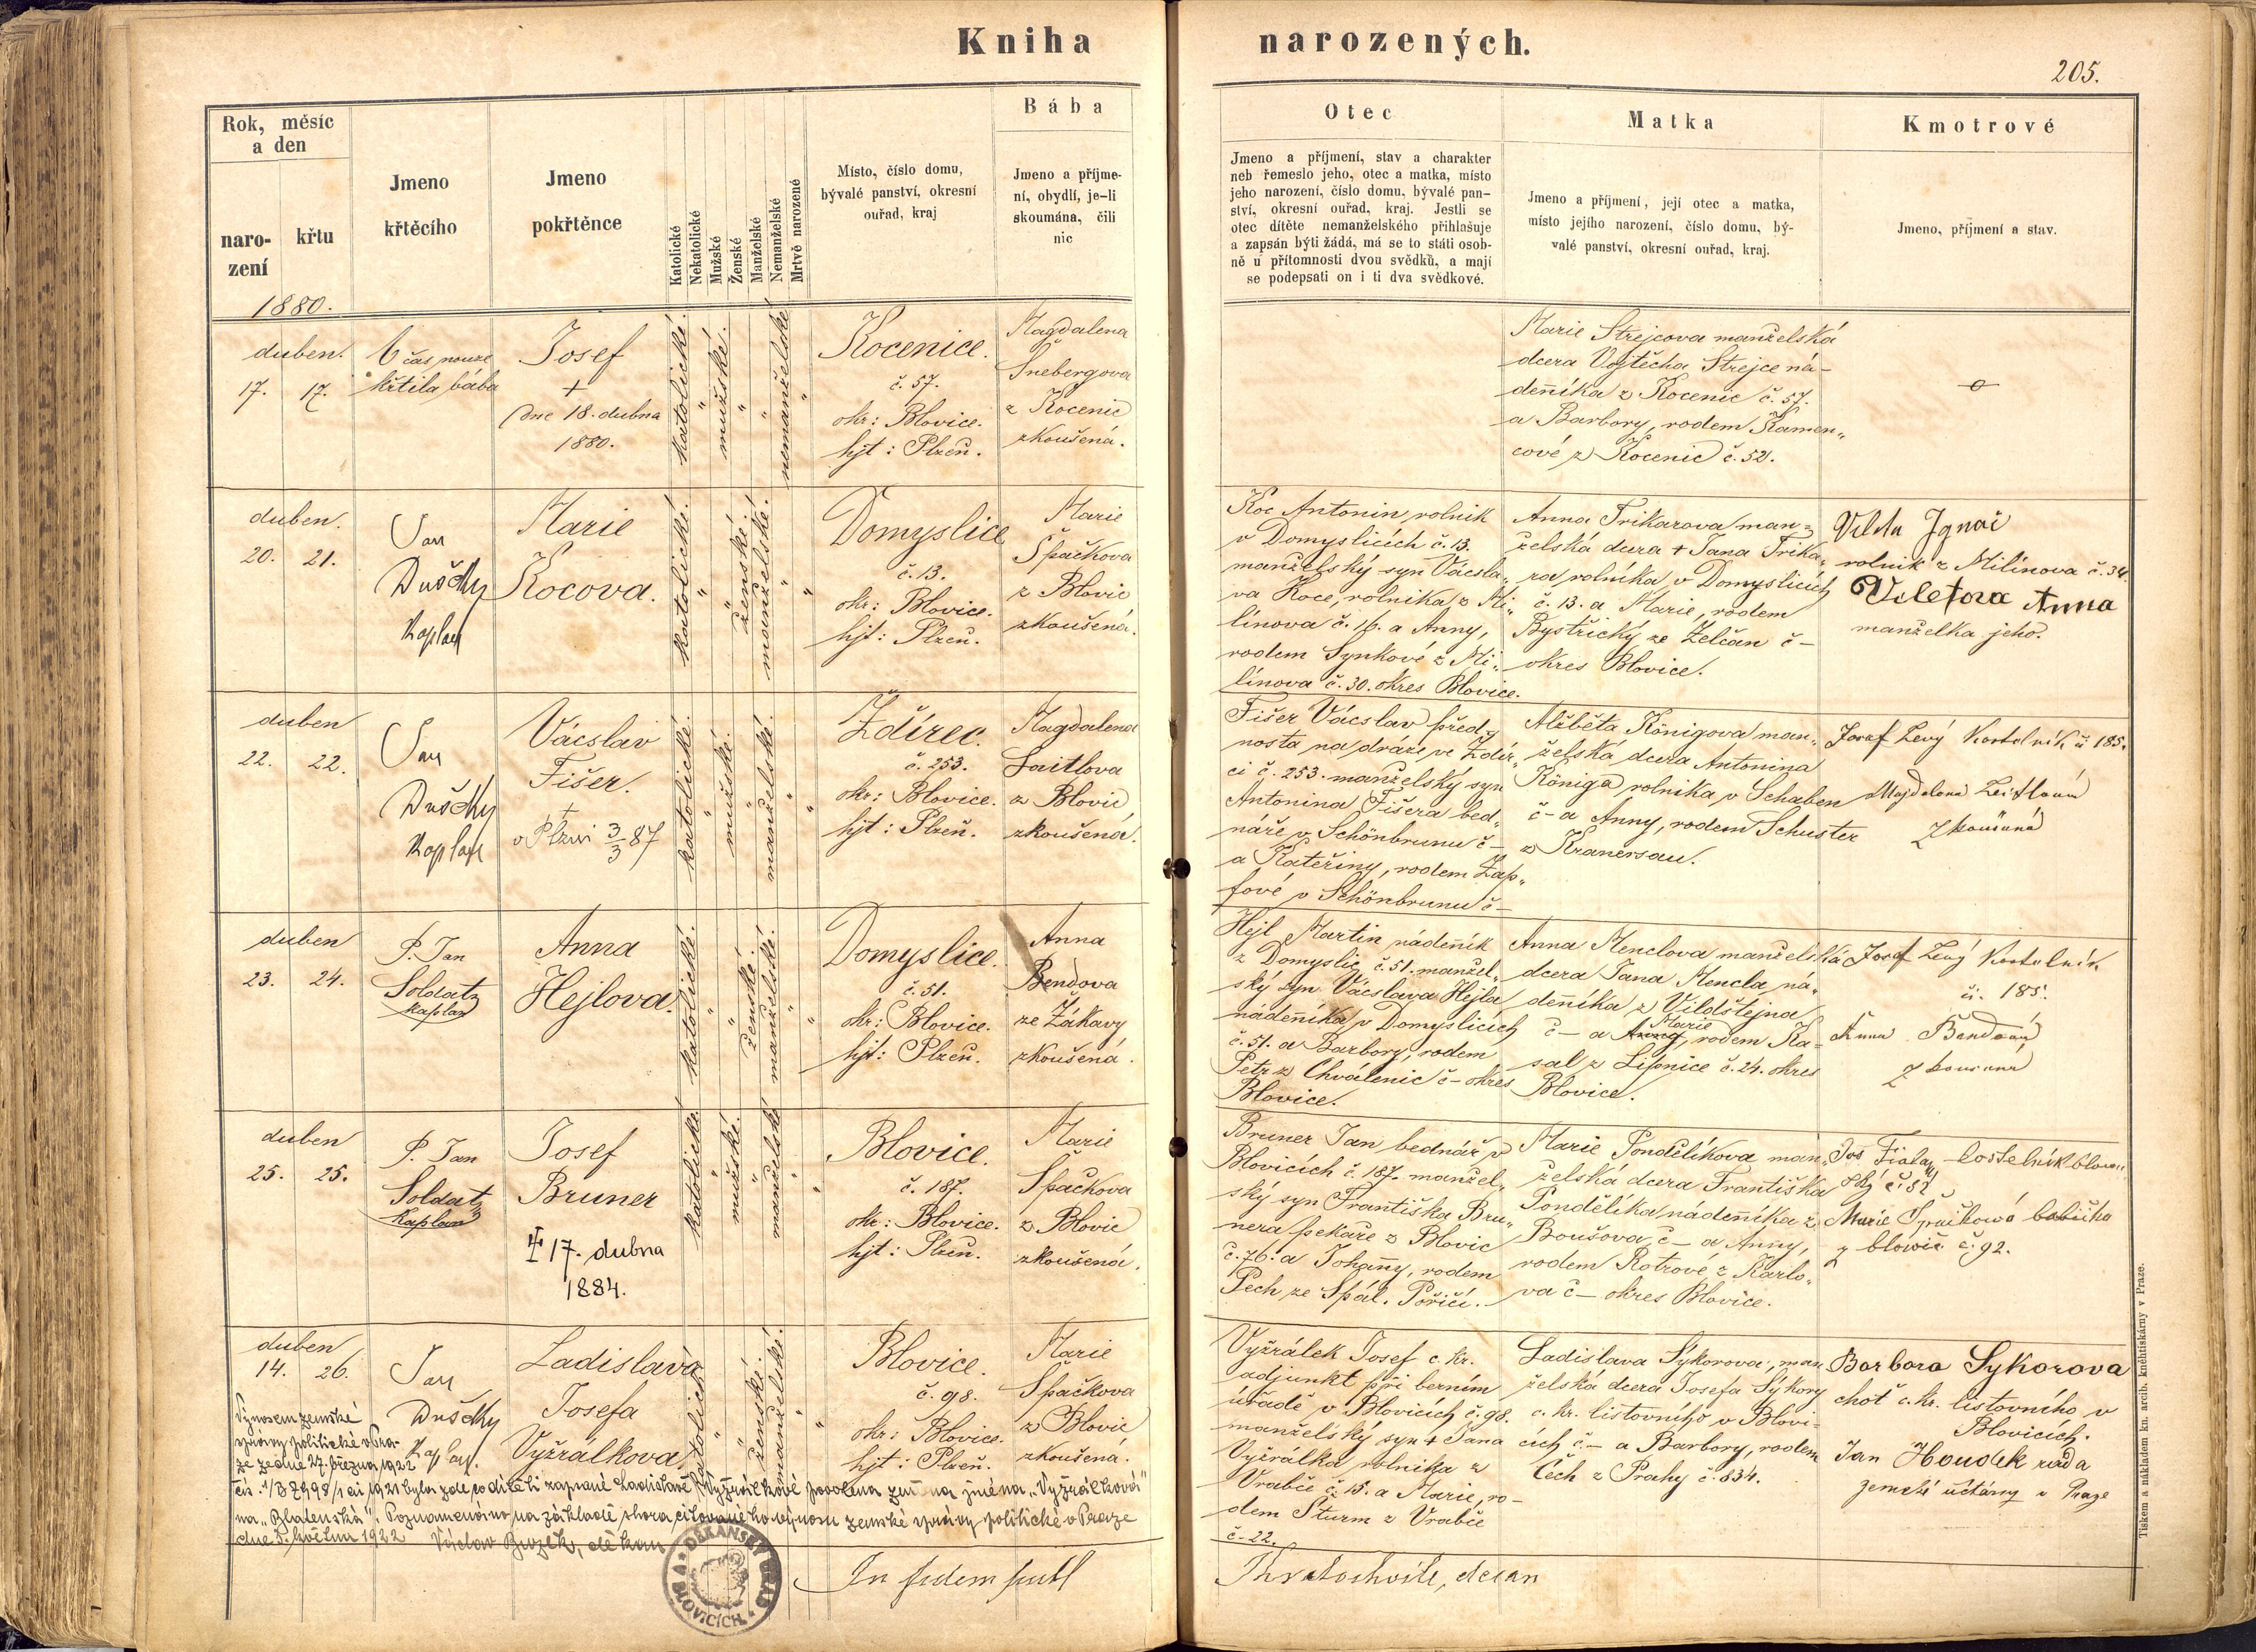 Kniha narozených.
205.
Rok, měsíc
a den
naro-
zení
křtu
Jmeno
křtěcího
Jmeno
pokřtěnce
Katolické
Nekatolické
Mužské
Ženské
Manželské
Nemanželské
Mrtvě narozené
Místo, číslo domu,
bývalé panství, okresní
ouřad, kraj
Bába
Jmeno a příjme-
ní, obydlí, je-li
skoumána, čili
nic
Otec
Jmeno a příjmení, stav a charakter
neb řemeslo jeho, otec a matka, místo
jeho narození, číslo domu, bývalé pan-
ství, okresní ouřad, kraj. Jestli se
otec dítěte nemanželského přihlašuje
a zapsán býti žádá, má se to státi osob-
ně u přítomnosti dvou svědkū, a mají
se podepsati on i ti dva svědkové.
Matka
Jmeno a příjmení, její otec a matka,
místo jejího narození, číslo domu, bý-
valé panství, okresní ouřad, kraj.
Kmotrové
Jmeno, příjmení a stav.
1880.
duben.
17. 17.
V čas nouze
křtila bába
Josef
+
dne 18. dubna
1880.
katolické.
mužské.
nemanželské
Kocenice.
č. 57.
okr: Blovice.
hjt: Plzeň.
Magdalena
Snebergova
z Kocenic
zkoušená.
Marie Strejcova manželská
dcera Vojtěcha Strejce ná-
deníka z Kocenic č. 57.
a Barbory, rodem Kamen„
cové z Kocenic č. 52.
duben.
20. 21.
Jan
Dušdky
Kaplan
Marie
Kocova.
katolické.
ženské.
manželské.
Domyslice
č. 13.
okr: Blovice.
hjt: Plzeň.
Marie
Špačkova
z Blovic
zkoušená.
Koc Antonin rolník
v Domyslicích č. 13.
manželský syn Vácsla„
va Koce, rolníka z Mi„
línova č. 16. a Anny,
rodem Synkové z Mi„
línova č. 30. okres Blovice.
Anna Trikarova man=
želská dcera + Jana Trika„
ra rolníka v Domyslicích
č. 13. a Marie, rodem
Bystřický ze Želčan č –
okres Blovice.
Ignac
rolnik z Milínova č. 34.
Anna
manželka jeho.
duben
22. 22.
Jan
Dušdky
Kaplan
Vácslav
Fišer.
+
v Plzni 3/3 87
katolické.
mužské.
manželské.
Ždírec.
č. 253.
okr: Blovice.
hjt: Plzeň.
Magdalena
Laitlova
z Blovic
zkoušená.
Fišer Vácslav před„
nosta na dráze ve Ždír„
ci č. 253. manželský syn
Antonina Fišera bed„
náře v Schönbrunu č –
a Kateřiny, rodem Zap„
fové v Schönbrunu č –
Alžběta Königova man„
želská dcera Antonina
Königa rolníka v Schaben
č – a Anny, rodem Schuster
z Kranersau.
Josef Levý Kostelník č 185.
Magdalena Leitlová
zkoušená
duben
23. 24.
P. Jan
Soldatz
kaplan
Anna
Hejlova.
katolické.
ženské.
manželské.
Domyslice.
č. 51.
okr: Blovice.
hjt: Plzeň.
Anna
Bendova
ze Žákavy
zkoušená.
Hejl Martin nádeník
z Domyslic č. 51. manžel„
ský syn Vácslava Hejla
nádeníka v Domyslicích
č. 51. a Barbory, rodem
Petr z Chválenic č – okres
Blovice.
Anna Menclova manželská
dcera Jana Mencla ná„
deníka z Vildštejna
č – a Marie, rodem Ka=
sal z Lipnice č. 24. okres
Blovice.
Josef Levý Kostelník
č. 185.
Anna Bendová
zkoušená
duben
25. 25.
P. Jan
Soldatz
kaplan
Josef
Bruner
17. dubna
1884.
katolické.
mužské.
manželské
Blovice.
č. 187.
okr: Blovice.
hjt: Plzeň.
Marie
Špačkova
z Blovic
zkoušená.
Bruner Jan bednář v
Blovicích č. 187. manžel„
ský syn Františka Bru„
nera pekaře z Blovic
č. 76. a Johanny, rodem
Pech ze Spál. Poříčí.
Marie Pondělíkova man„
želská dcera Františka
Pondělíka nádeníka z
Boušova č – a Anny,
rodem Kotrové z Karlo„
va č – okres Blovice.
Jos Fiala, kostelník
Marie Špačková babička
z blowic č. 92.
duben
14. 26.
Jan
Dušdky
Kaplan.
Ladislava
Josefa
Vyžrálkova.
katolické
ženské.
manželské.
Blovice.
č. 98.
okr: Blovice.
hjt: Plzeň.
Marie
Špačkova
z Blovic
zkoušená.
Vyžrálek Josef c. kr.
adjunkt při berním
úřadě v Blovicích č. 98.
manželský syn + Jana
Vyžrálka rolníka z
Vrabče č. 15. a Marie, ro–
dem Šturm z Vrabče
č – 22.
Ladislava Sýkorova, man
želská dcera Josefa Sýkory
c. kr. listovního v Blovi–
cích č – a Barbory, rodem
Čech z Prahy č. 834.
Barbora Sykorova
choť c. kr. listovního v
Blovicích.
Jan Houdek rada
zemské účtárny v Praze
Výnosem zemské
správy politické v Pra-
ze ze dne 27. března 1922
na „Blatenská“. Poznamenáno na základě shora citovaného výnosu zemské správy politické v Praze
dne 5. května 1922 Václav děkan
DĚKANSKÝ ÚŘAD
V BLOVICÍCH
In fidem publ
děkan
Tiskem a nákladem kn. arcib. knihtiskárny v Praze.